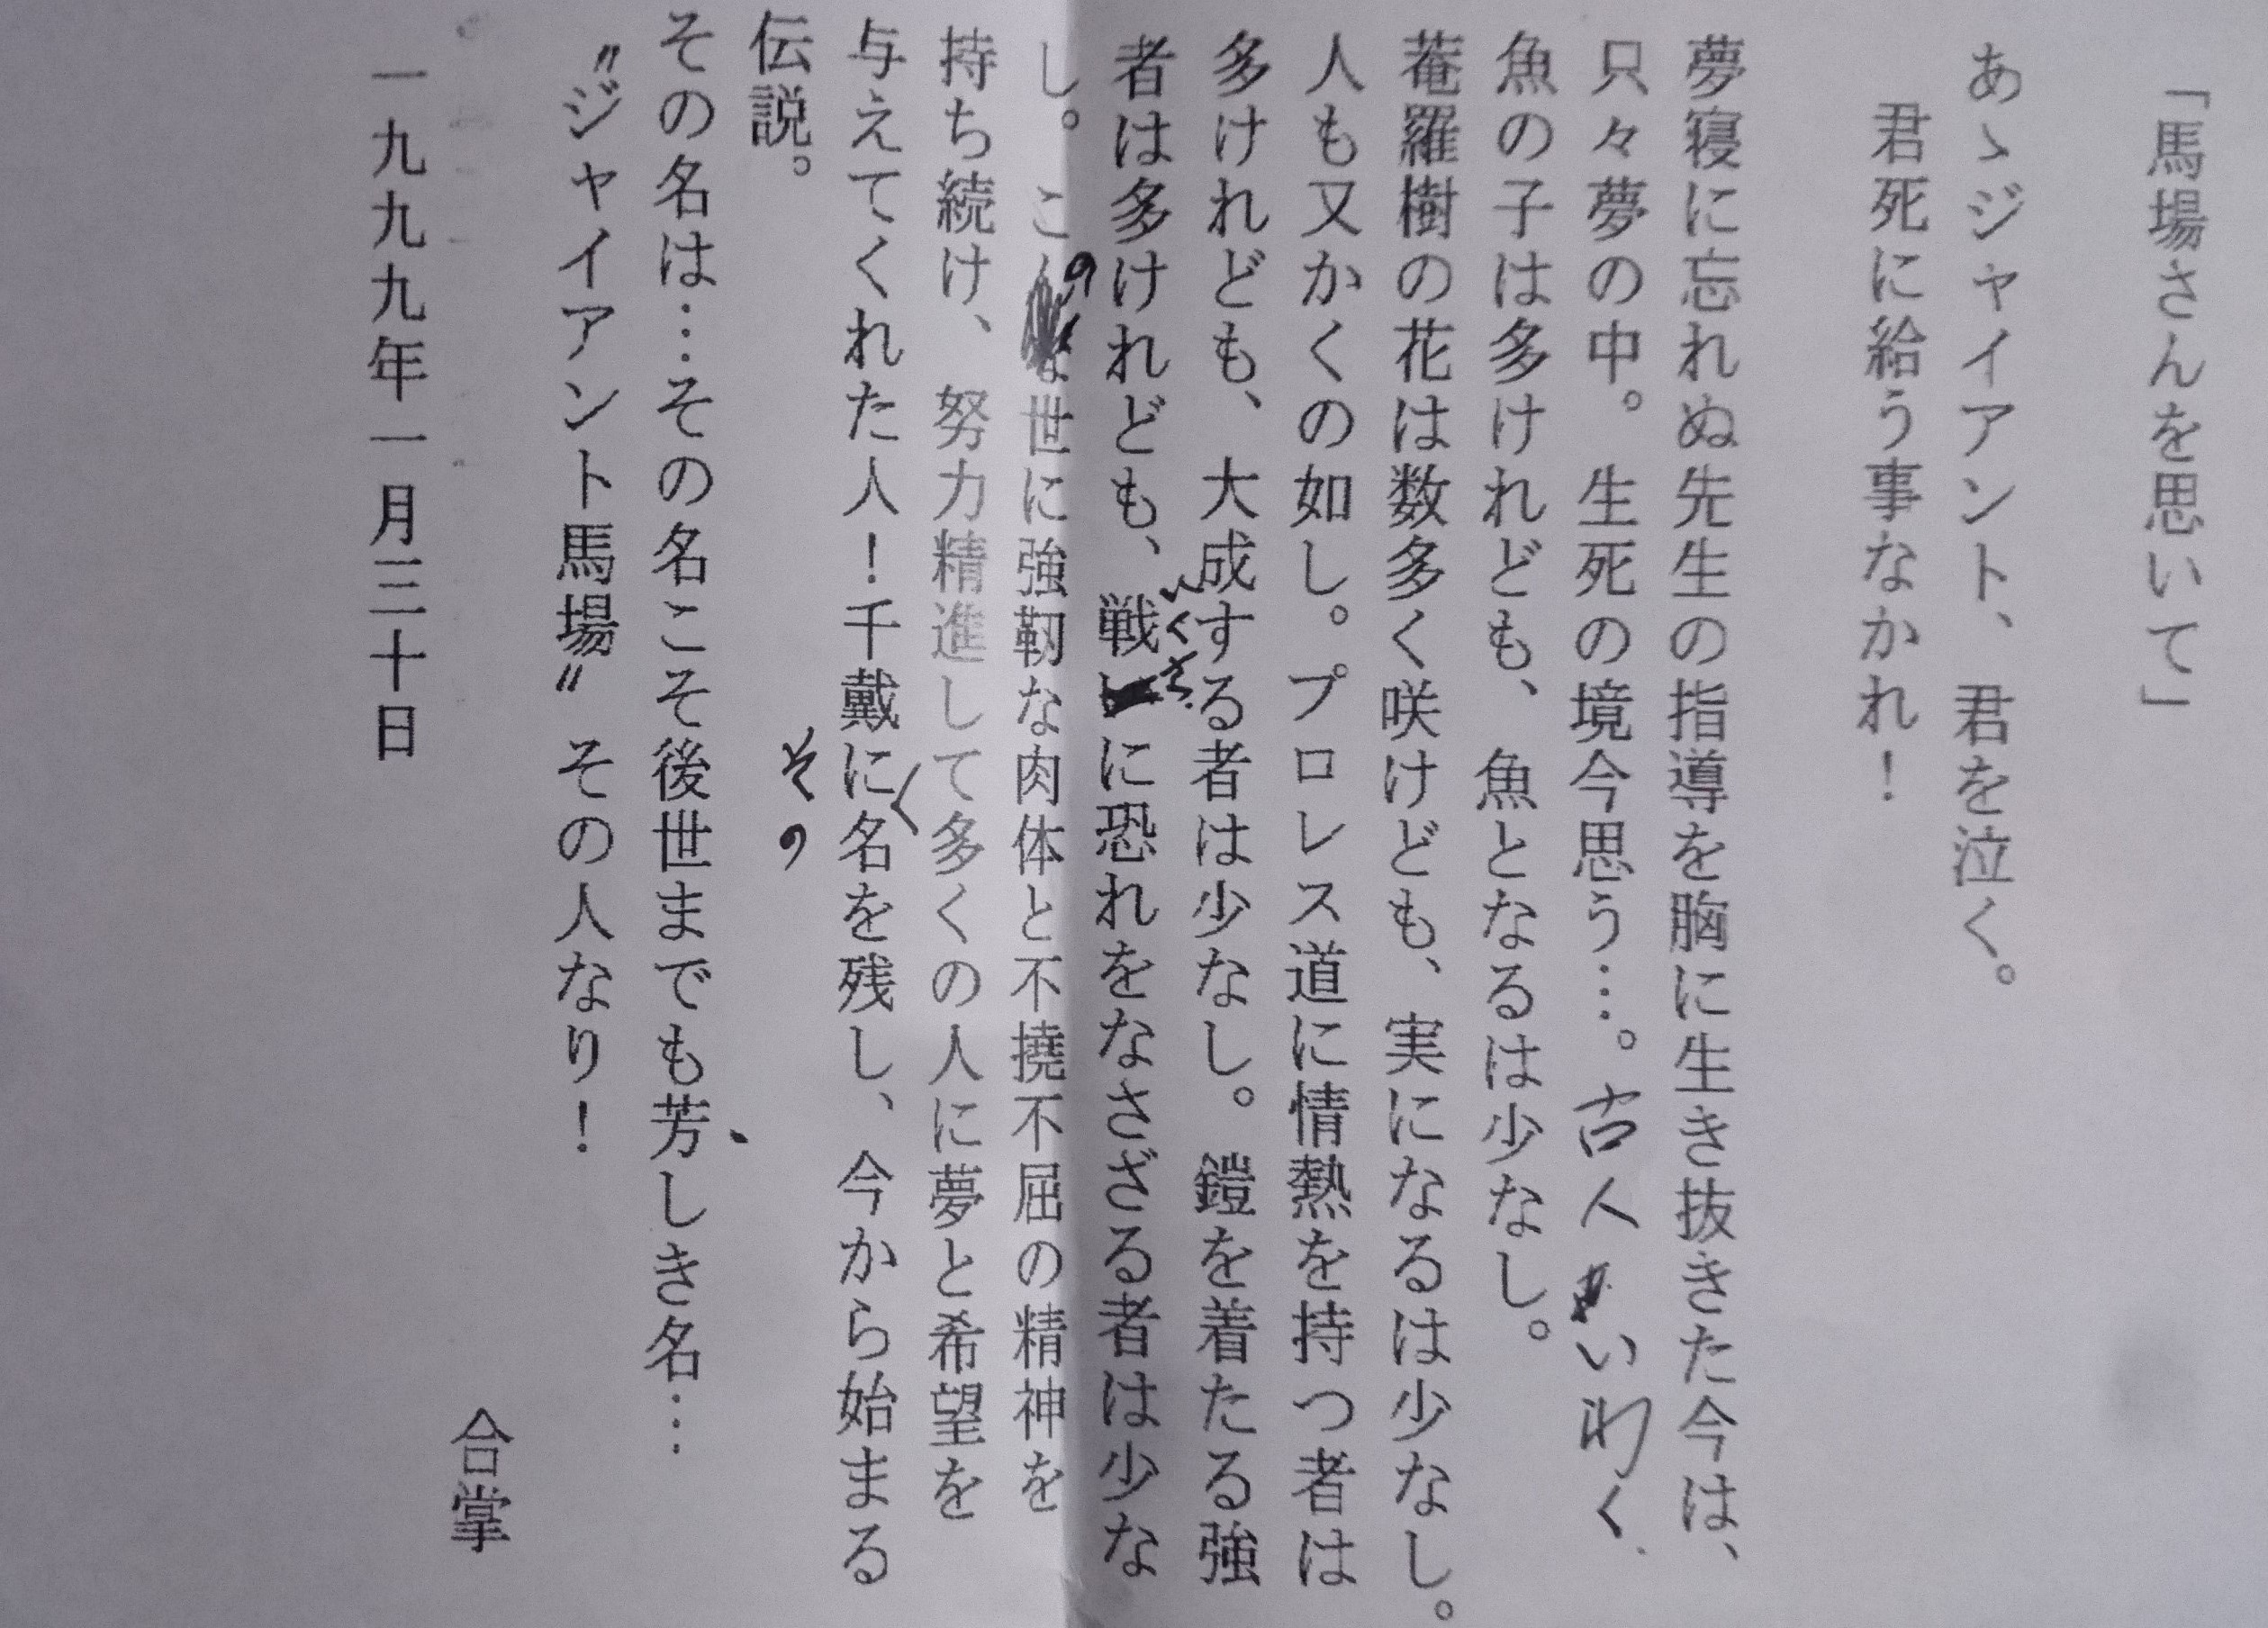 「馬場さんを思いて」
あゝジャイアント、君を泣く。
君死に給う事なかれ！
夢寝に忘れぬ先生の指導を胸に生き抜きた今は、
只々夢の中。生死の境今思う…。古人いわく
魚の子は多けれども、魚となるは少なし。
菴羅樹の花は数多く咲けども、実になるは少なし。
人も又かくの如し。プロレス道に情熱を持つ者は
多けれども、大成する者は少なし。鎧を着たる強
者は多けれども、戦いくさに恐れをなさざる者は少な
し。この世に強靭な肉体と不撓不屈の精神を
持ち続け、努力精進して多くの人に夢と希望を
与えてくれた人！千戴にその名を残し、今から始まる
伝説。
その名は…その名こそ後世までも芳しき名…
〝ジャイアント馬場〟その人なり！
合掌
一九九九年一月三十日